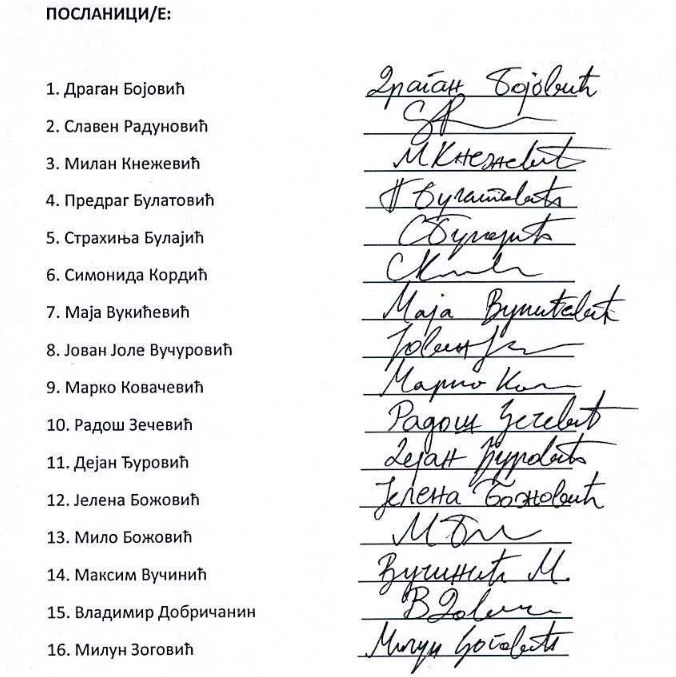 ПОСЛАНИЦИ/Е:
1. Драган Бојовић Драган Бојовић
2. Славен Радуновић
3. Милан Кнежевић М Кнежевић
4. Предраг Булатовић П Булатовић
5. Страхиња Булајић С Булајић
6. Симонида Кордић
7. Маја Вукићевић Маја Вукићевић
8. Јован Јоле Вучуровић Јован
9. Марко Ковачевић Марко
10. Радош Зечевић Радош Зечевић
11. Дејан Ђуровић Дејан Ђуровић
12. Јелена Божовић Јелена Божовић
13. Мило Божовић М
14. Максим Вучинић Вучинић М.
15. Владимир Добричанин В
16. Милун Зоговић Милун Зоговић